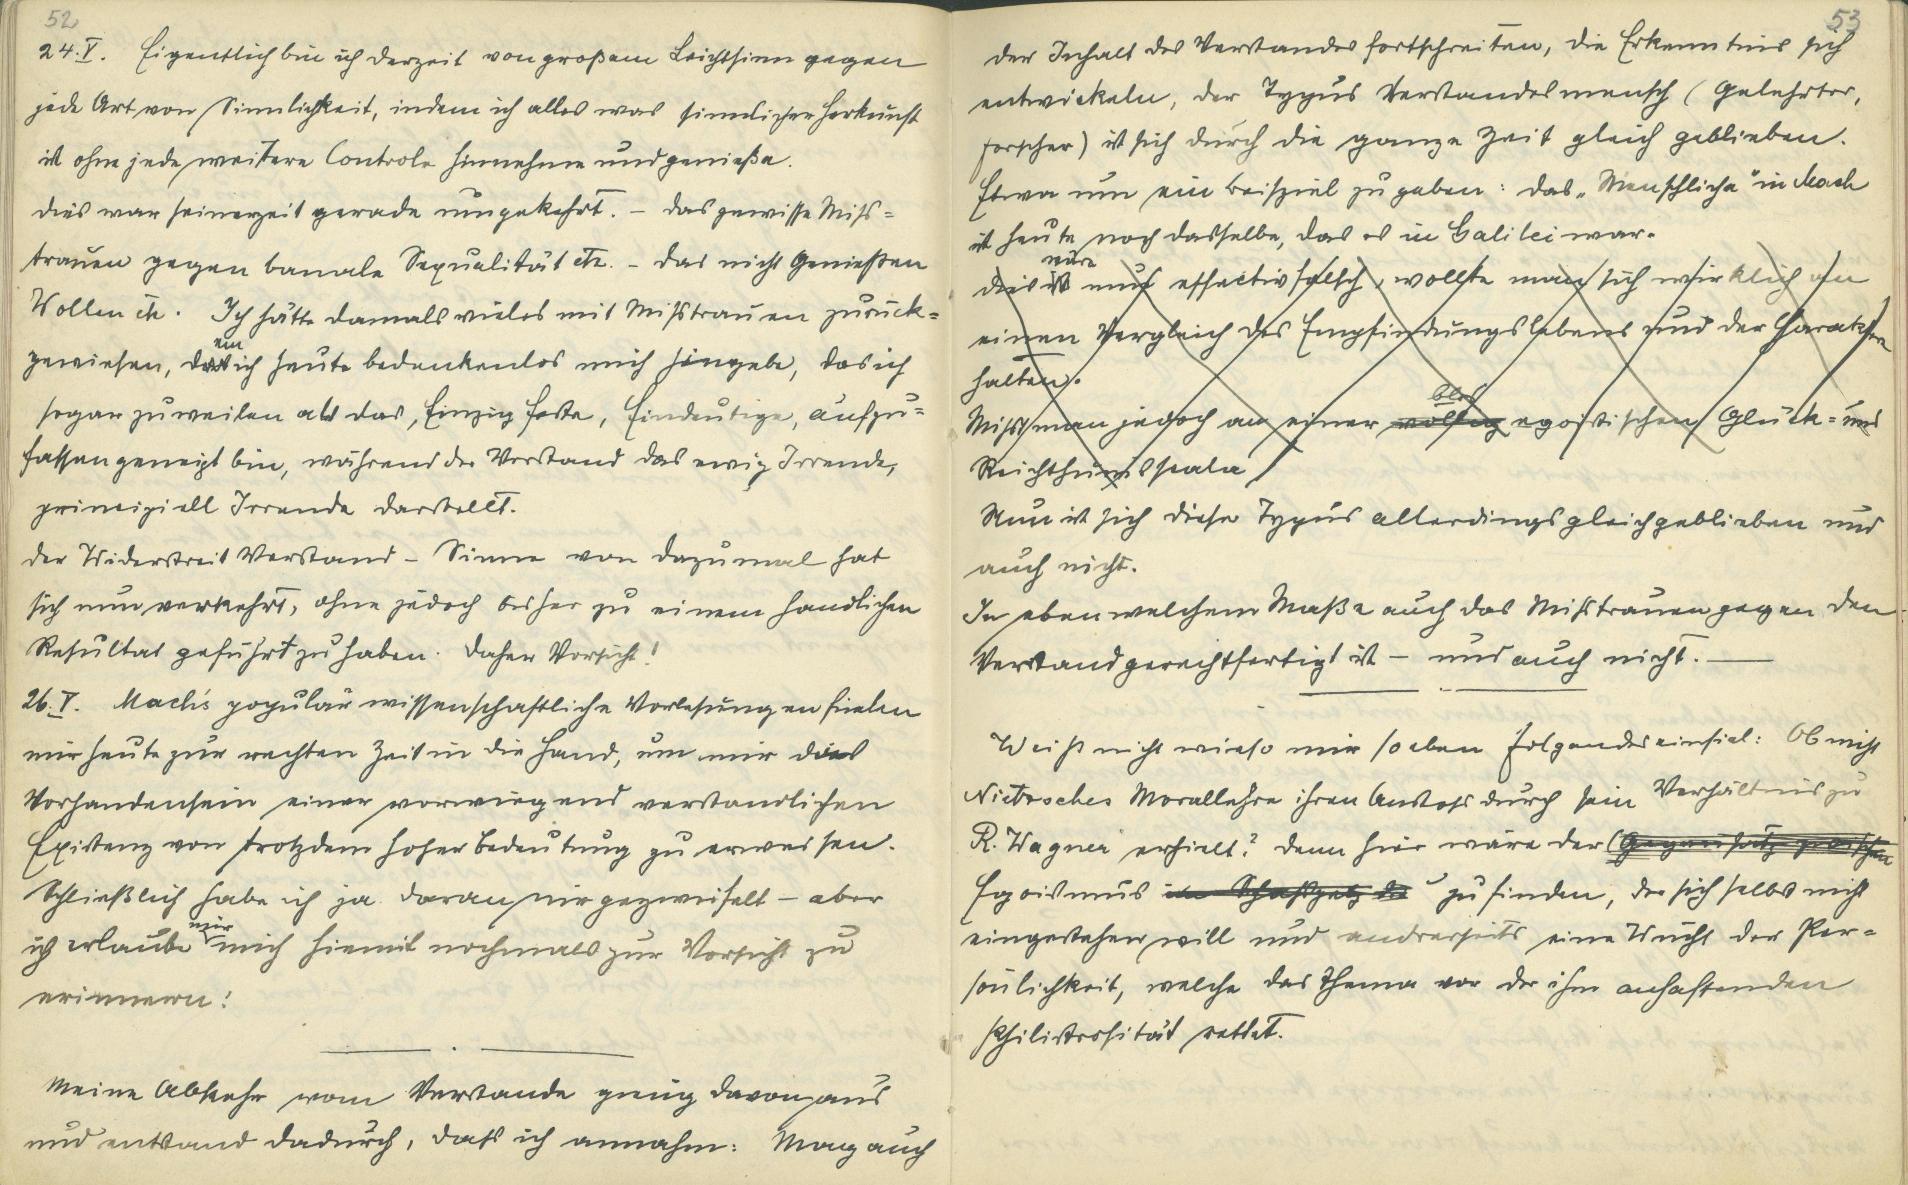 52
24.V. Eigentlich bin ich derzeit von großem Leichtsinn gegen
jede Art von Sinnlichkeit, indem ich alles was sinnlicher Herkunft
ist ohne jede weitere Controle hinnehme und genieße.
Dies war seinerzeit gerade umgekehrt. – Das gewisse Miss=
trauen gegen banale Sexualität etc. – Das nicht Genießen
Wollen etc. Ich hätte damals vieles mit Misstrauen zurück=
gewiesen, dem ich heute bedenkenlos mich hingebe, das ich
sogar zuweilen als das, Einzig feste, Eindeutige, aufzu=
fassen geneigt bin, während der Verstand das ewig Irrende,
principiell Irrende darstellt.
Der Widerstreit Verstand – Sinne von dazumal hat
sich nun verkehrt, ohne jedoch bisher zu einem handlichen
Resultat geführt zu haben. Daher Vorsicht!
26.V. Mach's populär wissenschaftliche Vorlesungen fielen
mir heute zur rechten Zeit in die Hand, um mir das
Vorhandensein einer vorwiegend verstandlichen
Existenz von trotzdem hoher Bedeutung zu erweisen.
Schließlich habe ich ja daran nie gezweifelt – aber
ich erlaube mir mich hiemit nochmals zur Vorsicht zu
erinnern!
Meine Abkehr vom Verstande gieng davon aus
und entstand dadurch, dass ich annahm: Mag auch
53
der Inhalt des Verstandes fortschreiten, die Erkenntnis sich
entwickeln, der Typus Verstandesmensch (Gelehrter,
Forscher) ist sich durch die ganze Zeit gleich geblieben.
Etwa um ein Beispiel zu geben: das „Menschliche" in Mach
ist heute noch dasselbe, das es in Galilei war.
Dies ist wäre nun effectiv falsch, wollte man sich wirklich an
einen Vergleich des Empfindungslebens und der Charaktere
halten.
Misst man jedoch an einer völlig blos egoistischen Glück= und
Reichthumsscala
Nun ist sich diese Typus allerdings gleichgeblieben und
auch nicht.
In eben welchem Maße auch das Misstrauen gegen den
Verstand gerechtfertigt ist – und auch nicht. —
Weiß nicht wieso mir soeben folgendes einfiel: Ob nicht
Nietzsches Morallehre ihren Anstoss durch sein Verhältnis zu
R. Wagner erhielt? Denn hier wäre der Gegensatz zwischen
Egoismus zu finden, der sich selbst nicht
eingestehen will und andrerseits eine Wucht der Per=
sönlichkeit, welche das Thema vor der ihm anhaftenden
Philistrosität rettet.